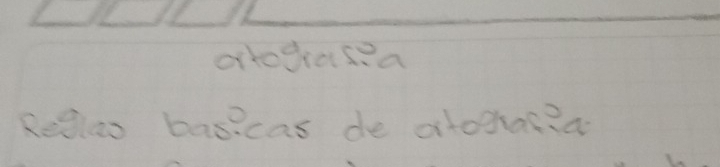 ortografía
Reglas basicas de ortografía